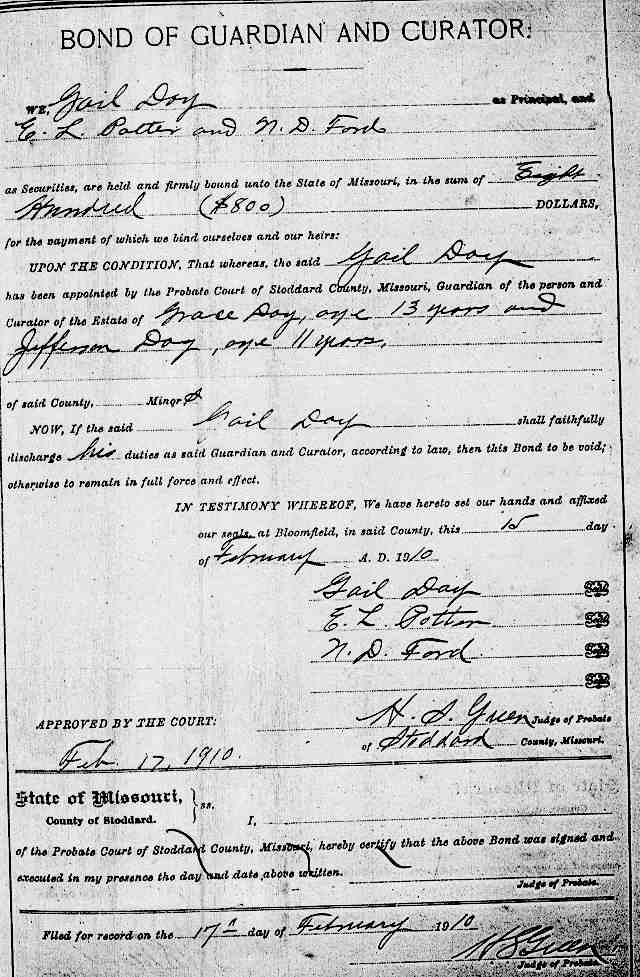 BOND OF GUARDIAN AND CURATOR:
WE, Gail Day as Principal, and
E. L. Potter and N. D. Ford
as Securities, are held and firmly bound unto the State of Missouri, in the sum of Eight
Hundred ($800) DOLLARS,
for the payment of which we bind ourselves and our heirs:
UPON THE CONDITION, That whereas, the said Gail Day
has been appointed by the Probate Court of Stoddard County, Missouri, Guardian of the person and
Curator of the Estate of Grace Day, age 13 years and
Jefferson Day, age 11 years.
of said County, Minors
NOW, If the said Gail Day shall faithfully
discharge his duties as said Guardian and Curator, according to law, then this Bond to be void;
otherwise to remain in full force and effect.
IN TESTIMONY WHEREOF, We have hereto set our hands and affixed
our seals, at Bloomfield, in said County, this 15 day
of February A. D. 1910
Gail Day Seal
E. L. Potter Seal
N. D. Ford Seal
Seal
APPROVED BY THE COURT: H. S. Green Judge of Probate
Feb. 17, 1910. of Stoddard County, Missouri.
State of Missouri,
County of Stoddard. ss. I,
of the Probate Court of Stoddard County, Missouri, hereby certify that the above Bond was signed and
executed in my presence the day and date above written.
Judge of Probate.
Filed for record on the 17" day of February 1910
H S Green
Judge of Probate.